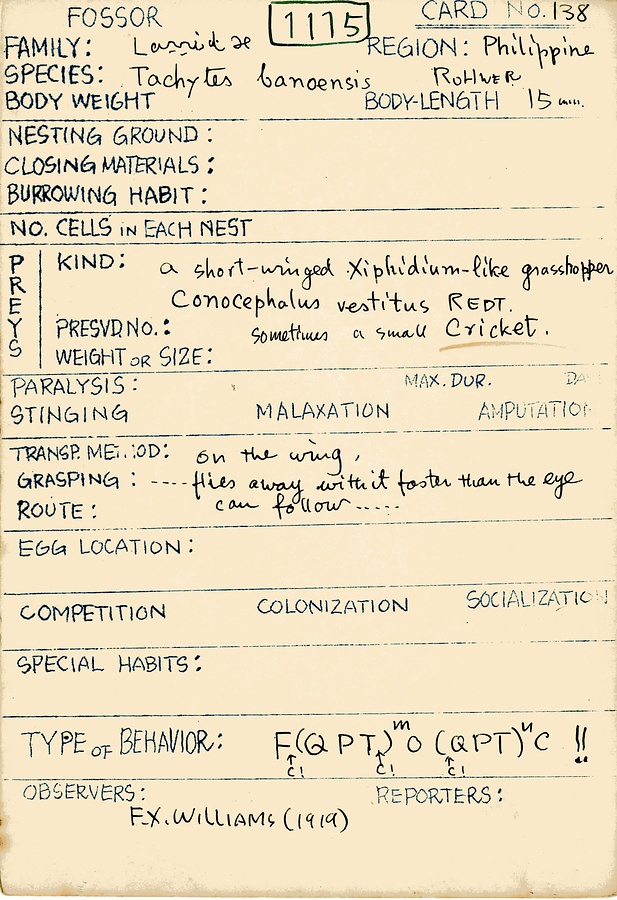 FOSSOR 1115 CARD NO. 138
FAMILY: Larridae REGION: Philippine
SPECIES: Tachytes banoensis ROHWER
BODY WEIGHT BODY-LENGTH 15 mm.
NESTING GROUND:
CLOSING MATERIALS:
BURROWING HABIT:
NO. CELLS IN EACH NEST
PREYS
KIND: a short-winged Xiphidium-like grasshopper
Conocephalus vestitus REDT.
PRESVD NO.: sometimes a small Cricket.
WEIGHT OR SIZE:
PARALYSIS: MAX. DUR. DA
STINGING MALAXATION AMPUTATION
TRANSP. METHOD: on the wing,
GRASPING: ----flies away with it faster than the eye
ROUTE: can follow-----
EGG LOCATION:
COMPETITION COLONIZATION SOCIALIZATION
SPECIAL HABITS:
TYPE OF BEHAVIOR: F(QPT)ᵐO(QPT)ⁿC !!
↑C! ↑C! ↑C!
OBSERVERS: REPORTERS:
F.X. WILLIAMS (1919)